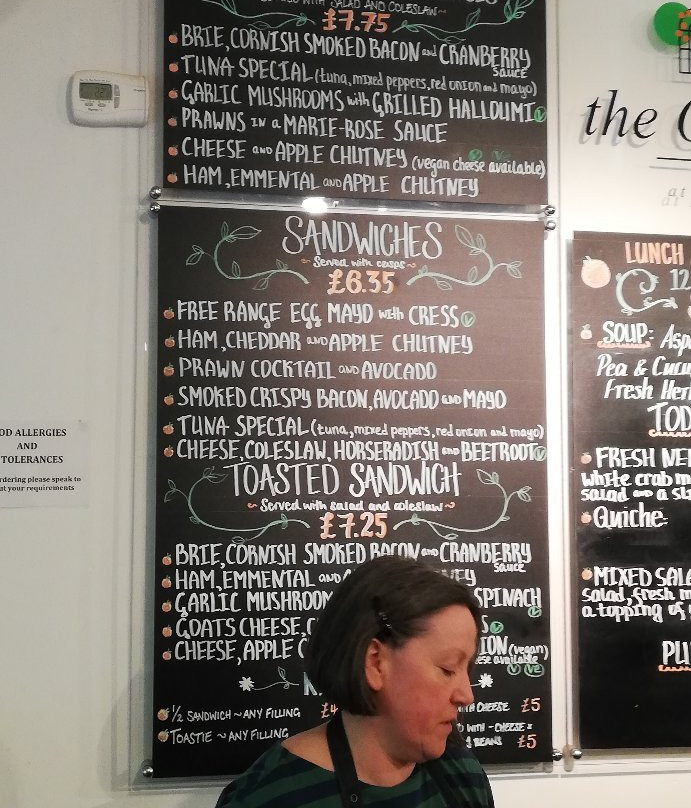 WITH SALAD AND COLESLAW
£7.75
BRIE, CORNISH SMOKED BACON and CRANBERRY sauce
TUNA SPECIAL (tuna, mixed peppers, red onion and mayo)
GARLIC MUSHROOMS with GRILLED HALLOUMI V
PRAWNS IN a MARIE-ROSE SAUCE
CHEESE AND APPLE CHUTNEY (vegan cheese available)
HAM, EMMENTAL and APPLE CHUTNEY
SANDWICHES
~ Served with crisps ~
£6.35
FREE RANGE EGG MAYO with CRESS V
HAM, CHEDDAR and APPLE CHUTNEY
PRAWN COCKTAIL AND AVOCADO
SMOKED CRISPY BACON, AVOCADO and MAYO
TUNA SPECIAL (tuna, mixed peppers, red onion and mayo)
CHEESE, COLESLAW, HORSERADISH and BEETROOT V
TOASTED SANDWICH
~ Served with salad and coleslaw ~
£7.25
BRIE, CORNISH SMOKED BACON and CRANBERRY sauce
HAM, EMMENTAL and
GARLIC MUSHROOM SPINACH V
GOATS CHEESE,
CHEESE, APPLE (vegan) available V VE
1/2 SANDWICH ~ ANY FILLING
TOASTIE ~ ANY FILLING
CHEESE £5
WITH - CHEESE
BEANS £5
OD ALLERGIES
AND
TOLERANCES
rdering please speak to
ut your requirements
the
at
LUNCH
12
SOUP:
Pea &
Fresh
FRESH
white crab
salad and a
Quiche
MIXED
salad, fresh
a topping of